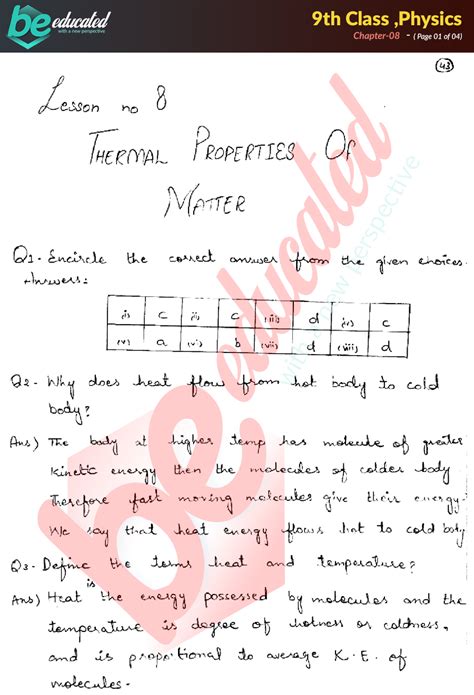 be educated
with a new perspective
9th Class ,Physics
Chapter-08 - ( Page 01 of 04)
43
Lesson no 8
THERMAL PROPERTIES OF
MATTER
Q1- Encircle the correct answer from the given choices.
Answers:
i) c ii) c (iii) d iv) c
(v) a (vi) b (vii) d (viii) d
Q2- Why does heat flow from hot body to cold
body?
Ans) The body at higher temp has molecule of greater
kinetic energy then the molecules of colder body
Therefore fast moving molecules give their energy.
We say that heat energy flows hot to cold body
Q3- Define the terms heat and temperature?
Ans) Heat is the energy possessed by molecules and the
temperature is degree of hotness or coldness,
and is proportional to average K.E. of
molecules.
be educated
with a new perspective